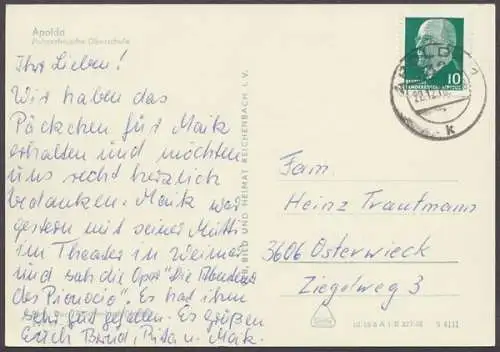 Apolda
Polytechnische Oberschule
Ihr Lieben!
Wir haben das
Päckchen für Maik
erhalten und möchten
uns recht herzlich
bedanken. Maik war
gestern mit seiner Mutti
im Theater in Weimar
und sah die Oper "Die Abenteuer
des Pinocio". Es hat ihm
sehr gut gefallen. Es grüßen
Erich Bernd, Rita u. Maik.
BILD UND HEIMAT REICHENBACH I. V.
10
Fam
Heinz Trautmann
3606 Osterwieck
Ziegelweg 3